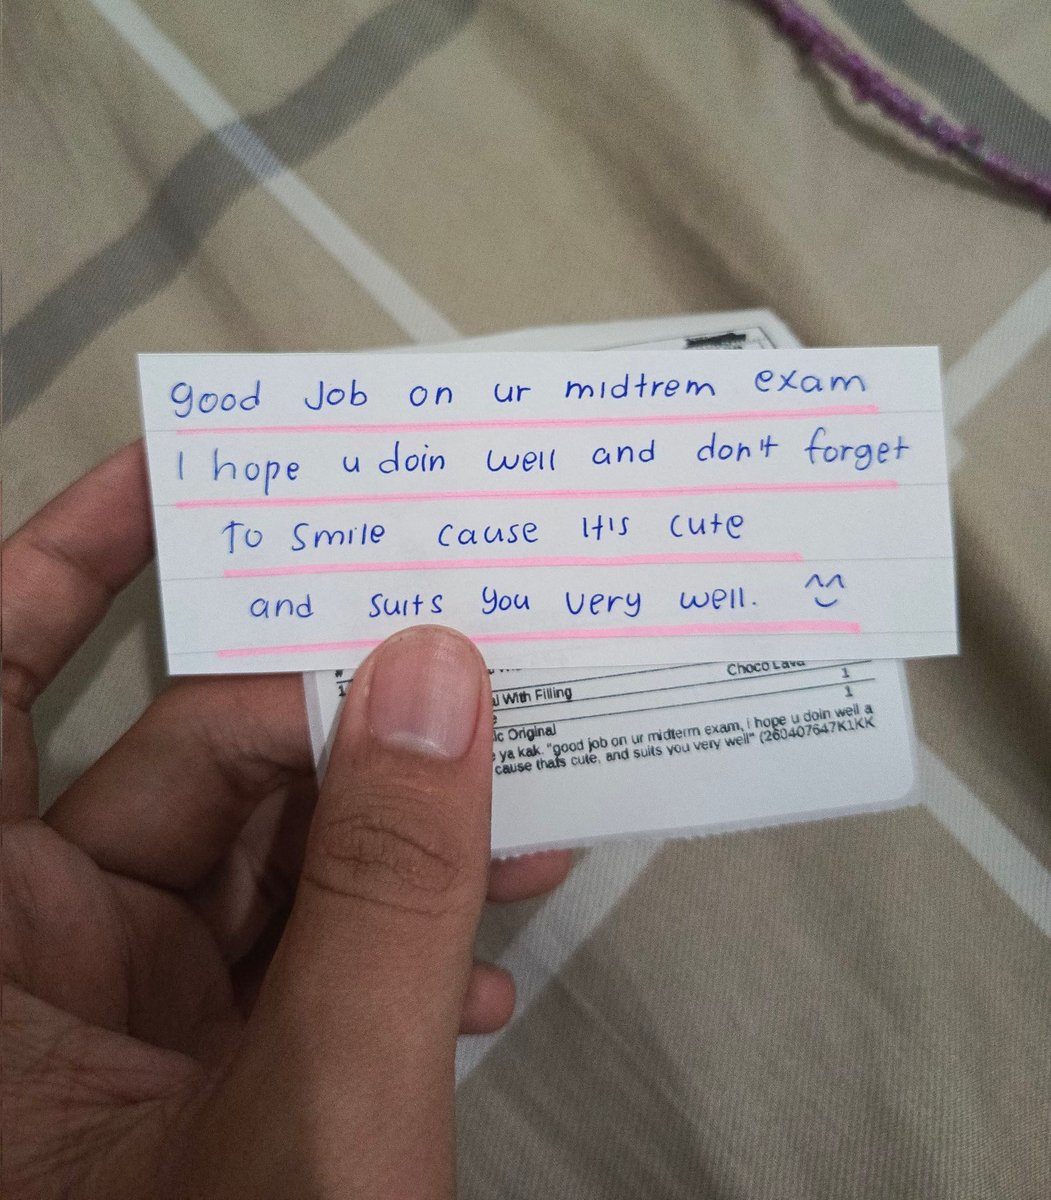 good Job on ur midtrem exam
I hope u doin well and don't forget
to smile cause it's cute
and suits you very well. ^^
Choco Lava
1
With Filling
1
1
ic Original
ya kak. "good job on ur midterm exam, i hope u doin well a
cause thats cute, and suits you very well" (260407647K1KK